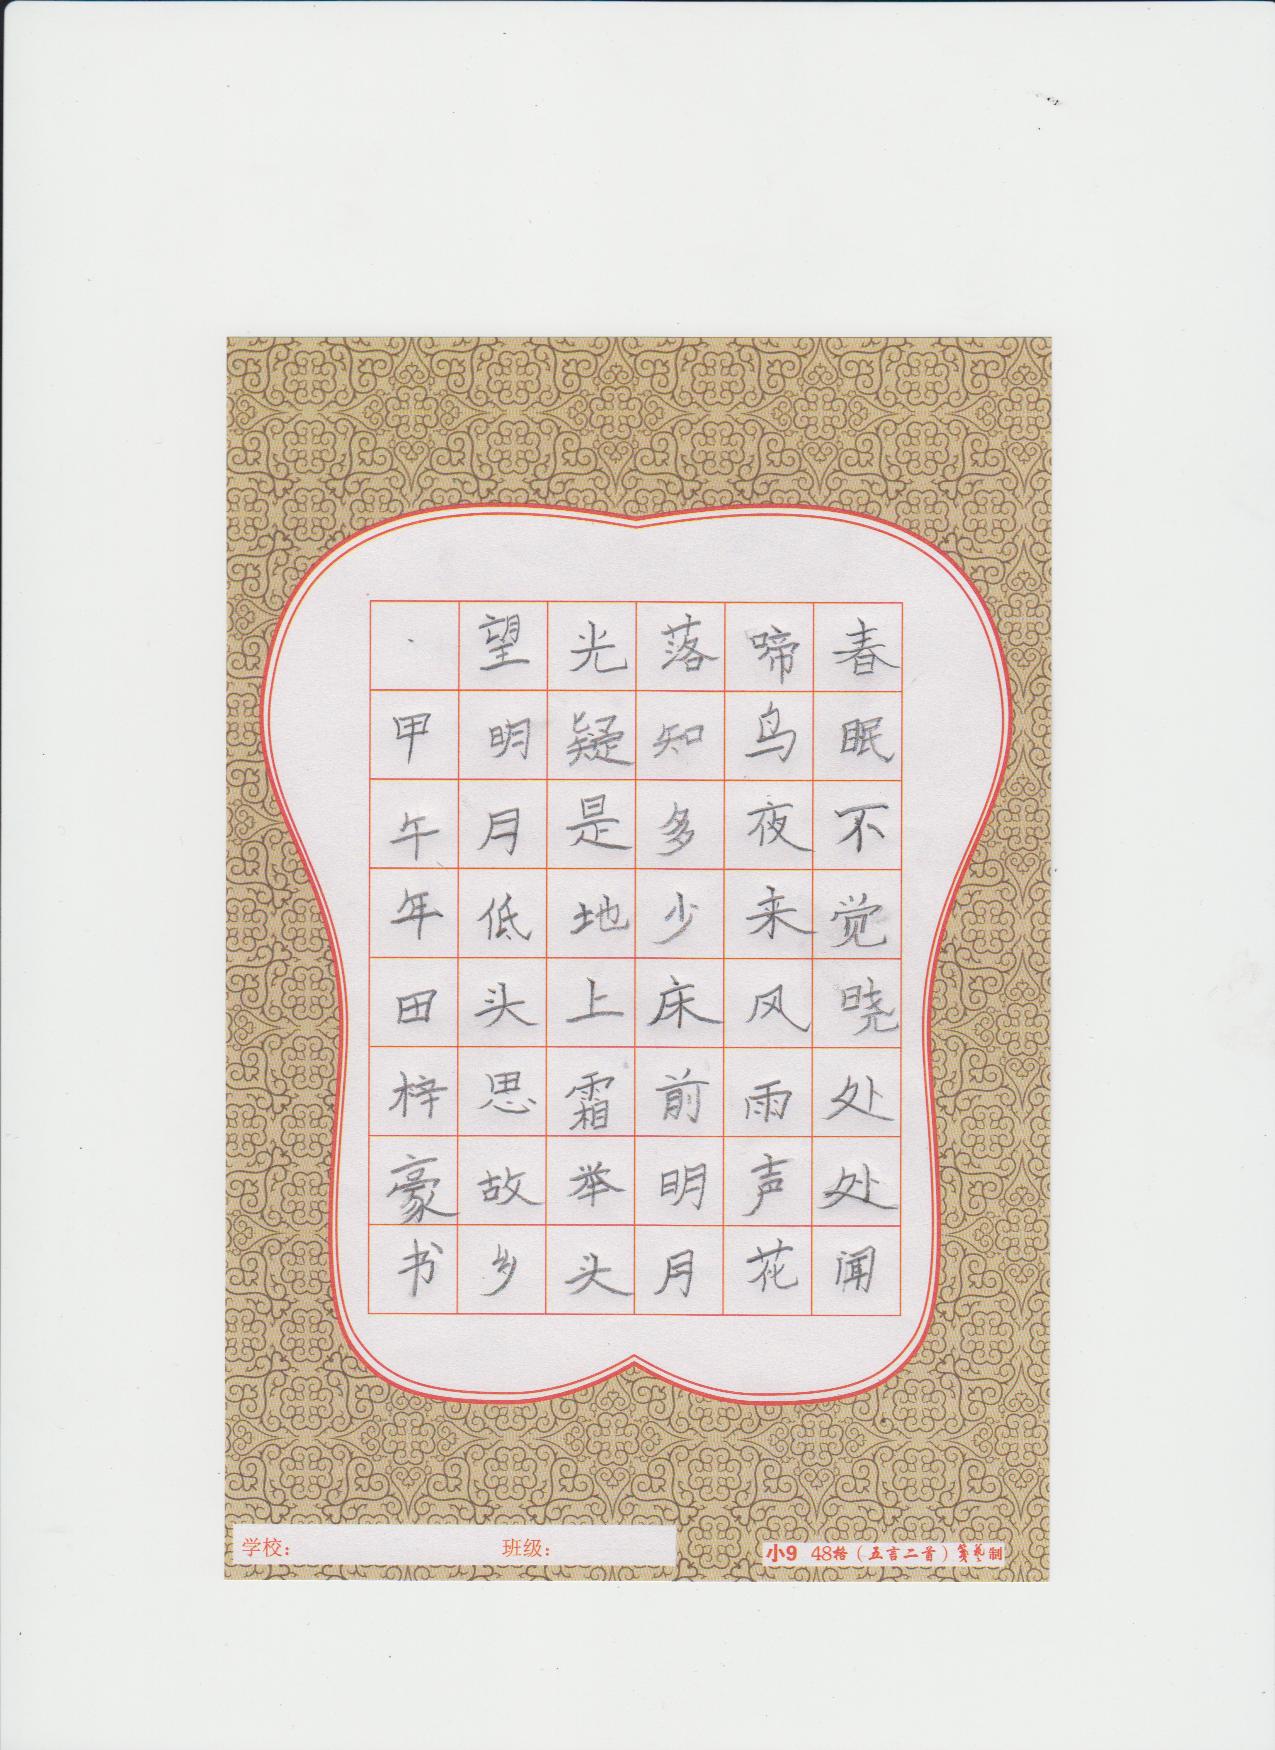 春眠不觉晓处处闻
啼鸟夜来风雨声花
落知多少床前明月
光疑是地上霜举头
望明月低头思故乡
甲午年田梓豪书
学校：
班级：
小9 48格（五言二首）笺艺制